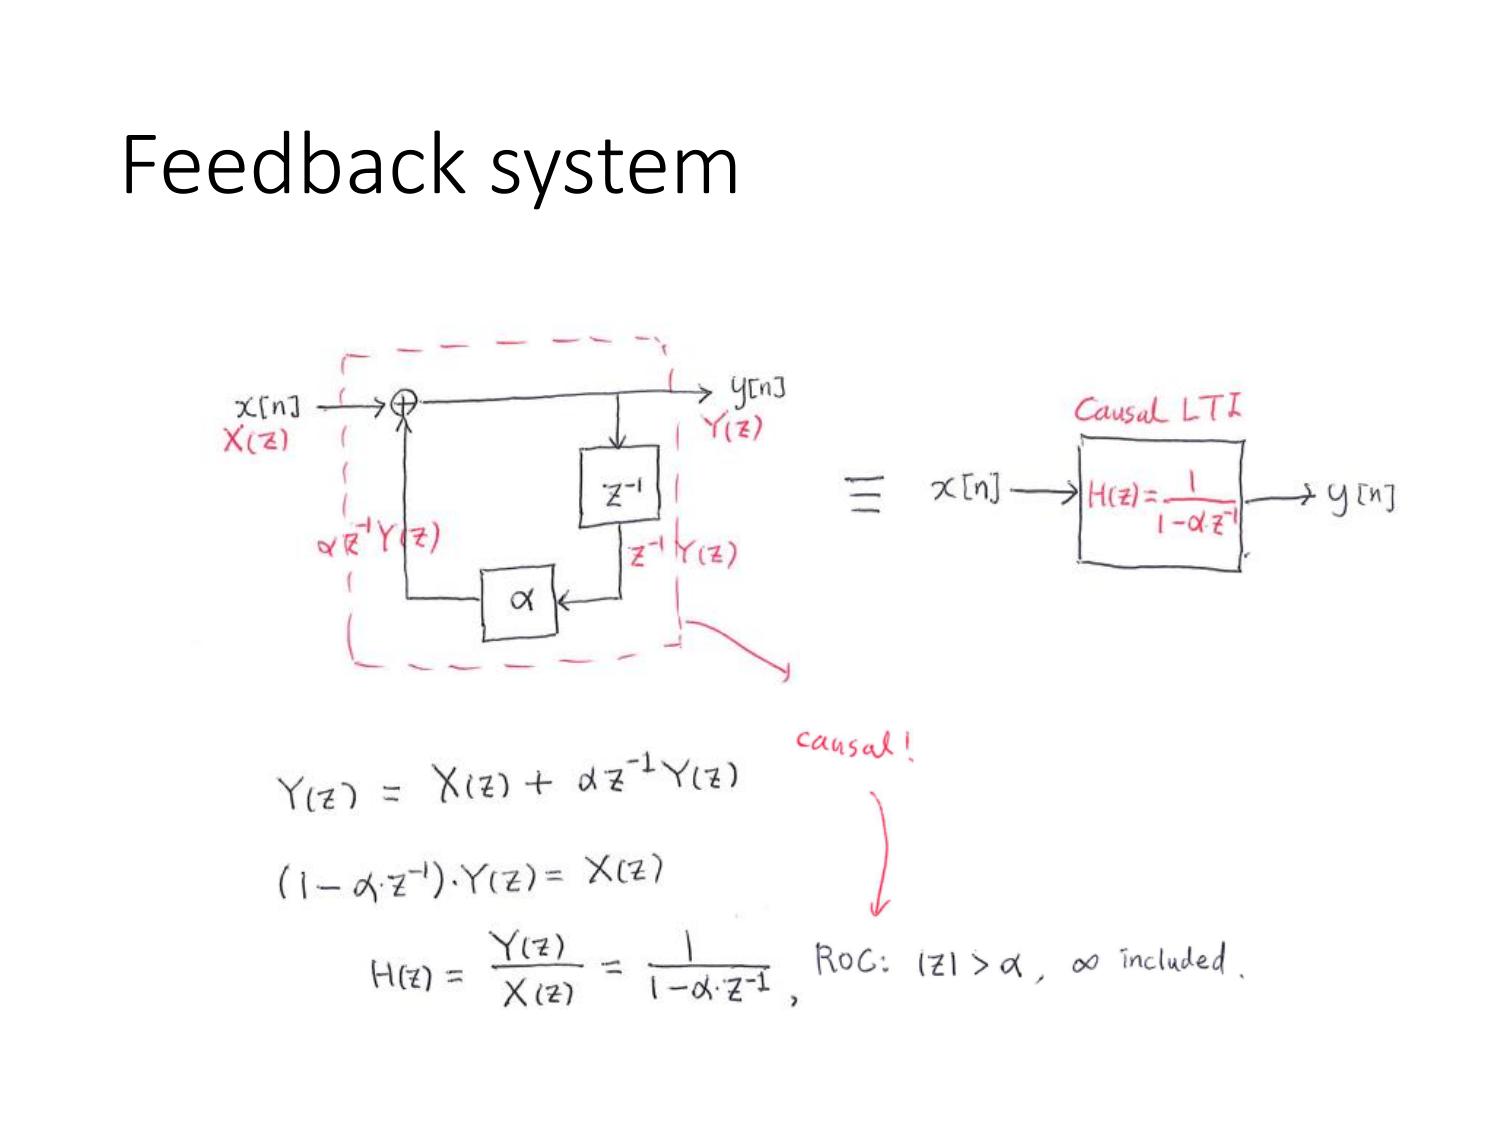 Feedback system
x[n]
X(z)
y[n]
Y(z)
z⁻¹
αz⁻¹Y(z)
z⁻¹Y(z)
α
≡
Causal LTI
x[n]
H(z)=1/(1-α·z⁻¹)
y[n]
causal!
Y(z) = X(z) + αz⁻¹Y(z)
(1-α·z⁻¹)·Y(z)= X(z)
H(z) = Y(z)/X(z) = 1/(1-α·z⁻¹), ROC: |z| > α, ∞ included.